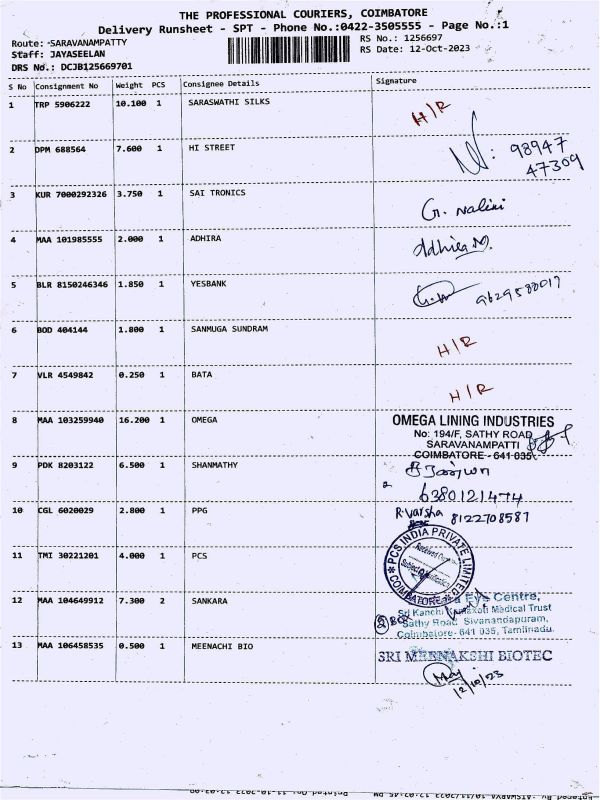 THE PROFESSIONAL COURIERS, COIMBATORE
Delivery Runsheet - SPT - Phone No.:0422-3505555 - Page No.:1
Route: -SARAVANAMPATTY
RS No.: 1256697
Staff: JAYASEELAN
RS Date: 12-Oct-2023
DRS No.: DCJB125669701
S No Consignment No Weight PCS Consignee Details Signature
1 TRP 5906222 10.100 1 SARASWATHI SILKS H/R
2 DPM 688564 7.600 1 HI STREET 98947
47309
3 KUR 7000292326 3.750 1 SAI TRONICS G. Nalini
4 MAA 101985555 2.000 1 ADHIRA Adhira M.
5 BLR 8150246346 1.850 1 YESBANK 9629588017
6 BOD 404144 1.800 1 SANMUGA SUNDRAM H/R
7 VLR 4549842 0.250 1 BATA H/R
8 MAA 103259940 16.200 1 OMEGA OMEGA LINING INDUSTRIES
No: 194/F, SATHY ROAD
SARAVANAMPATTI
COIMBATORE - 641 035
9 PDK 8203122 6.500 1 SHANMATHY
6380121474
10 CGL 6020029 2.800 1 PPG R. Varsha 8122708587
11 TMI 30221201 4.000 1 PCS PCS INDIA PRIVATE LIMITED
COIMBATORE
12 MAA 104649912 7.300 2 SANKARA Eye Centre,
Sri Kanchi Kamakoti Medical Trust
Sathy Road Sivanandapuram,
Coimbatore - 641 035, Tamilnadu.
13 MAA 106458535 0.500 1 MEENACHI BIO SRI MEENAKSHI BIOTEC
12/10/23